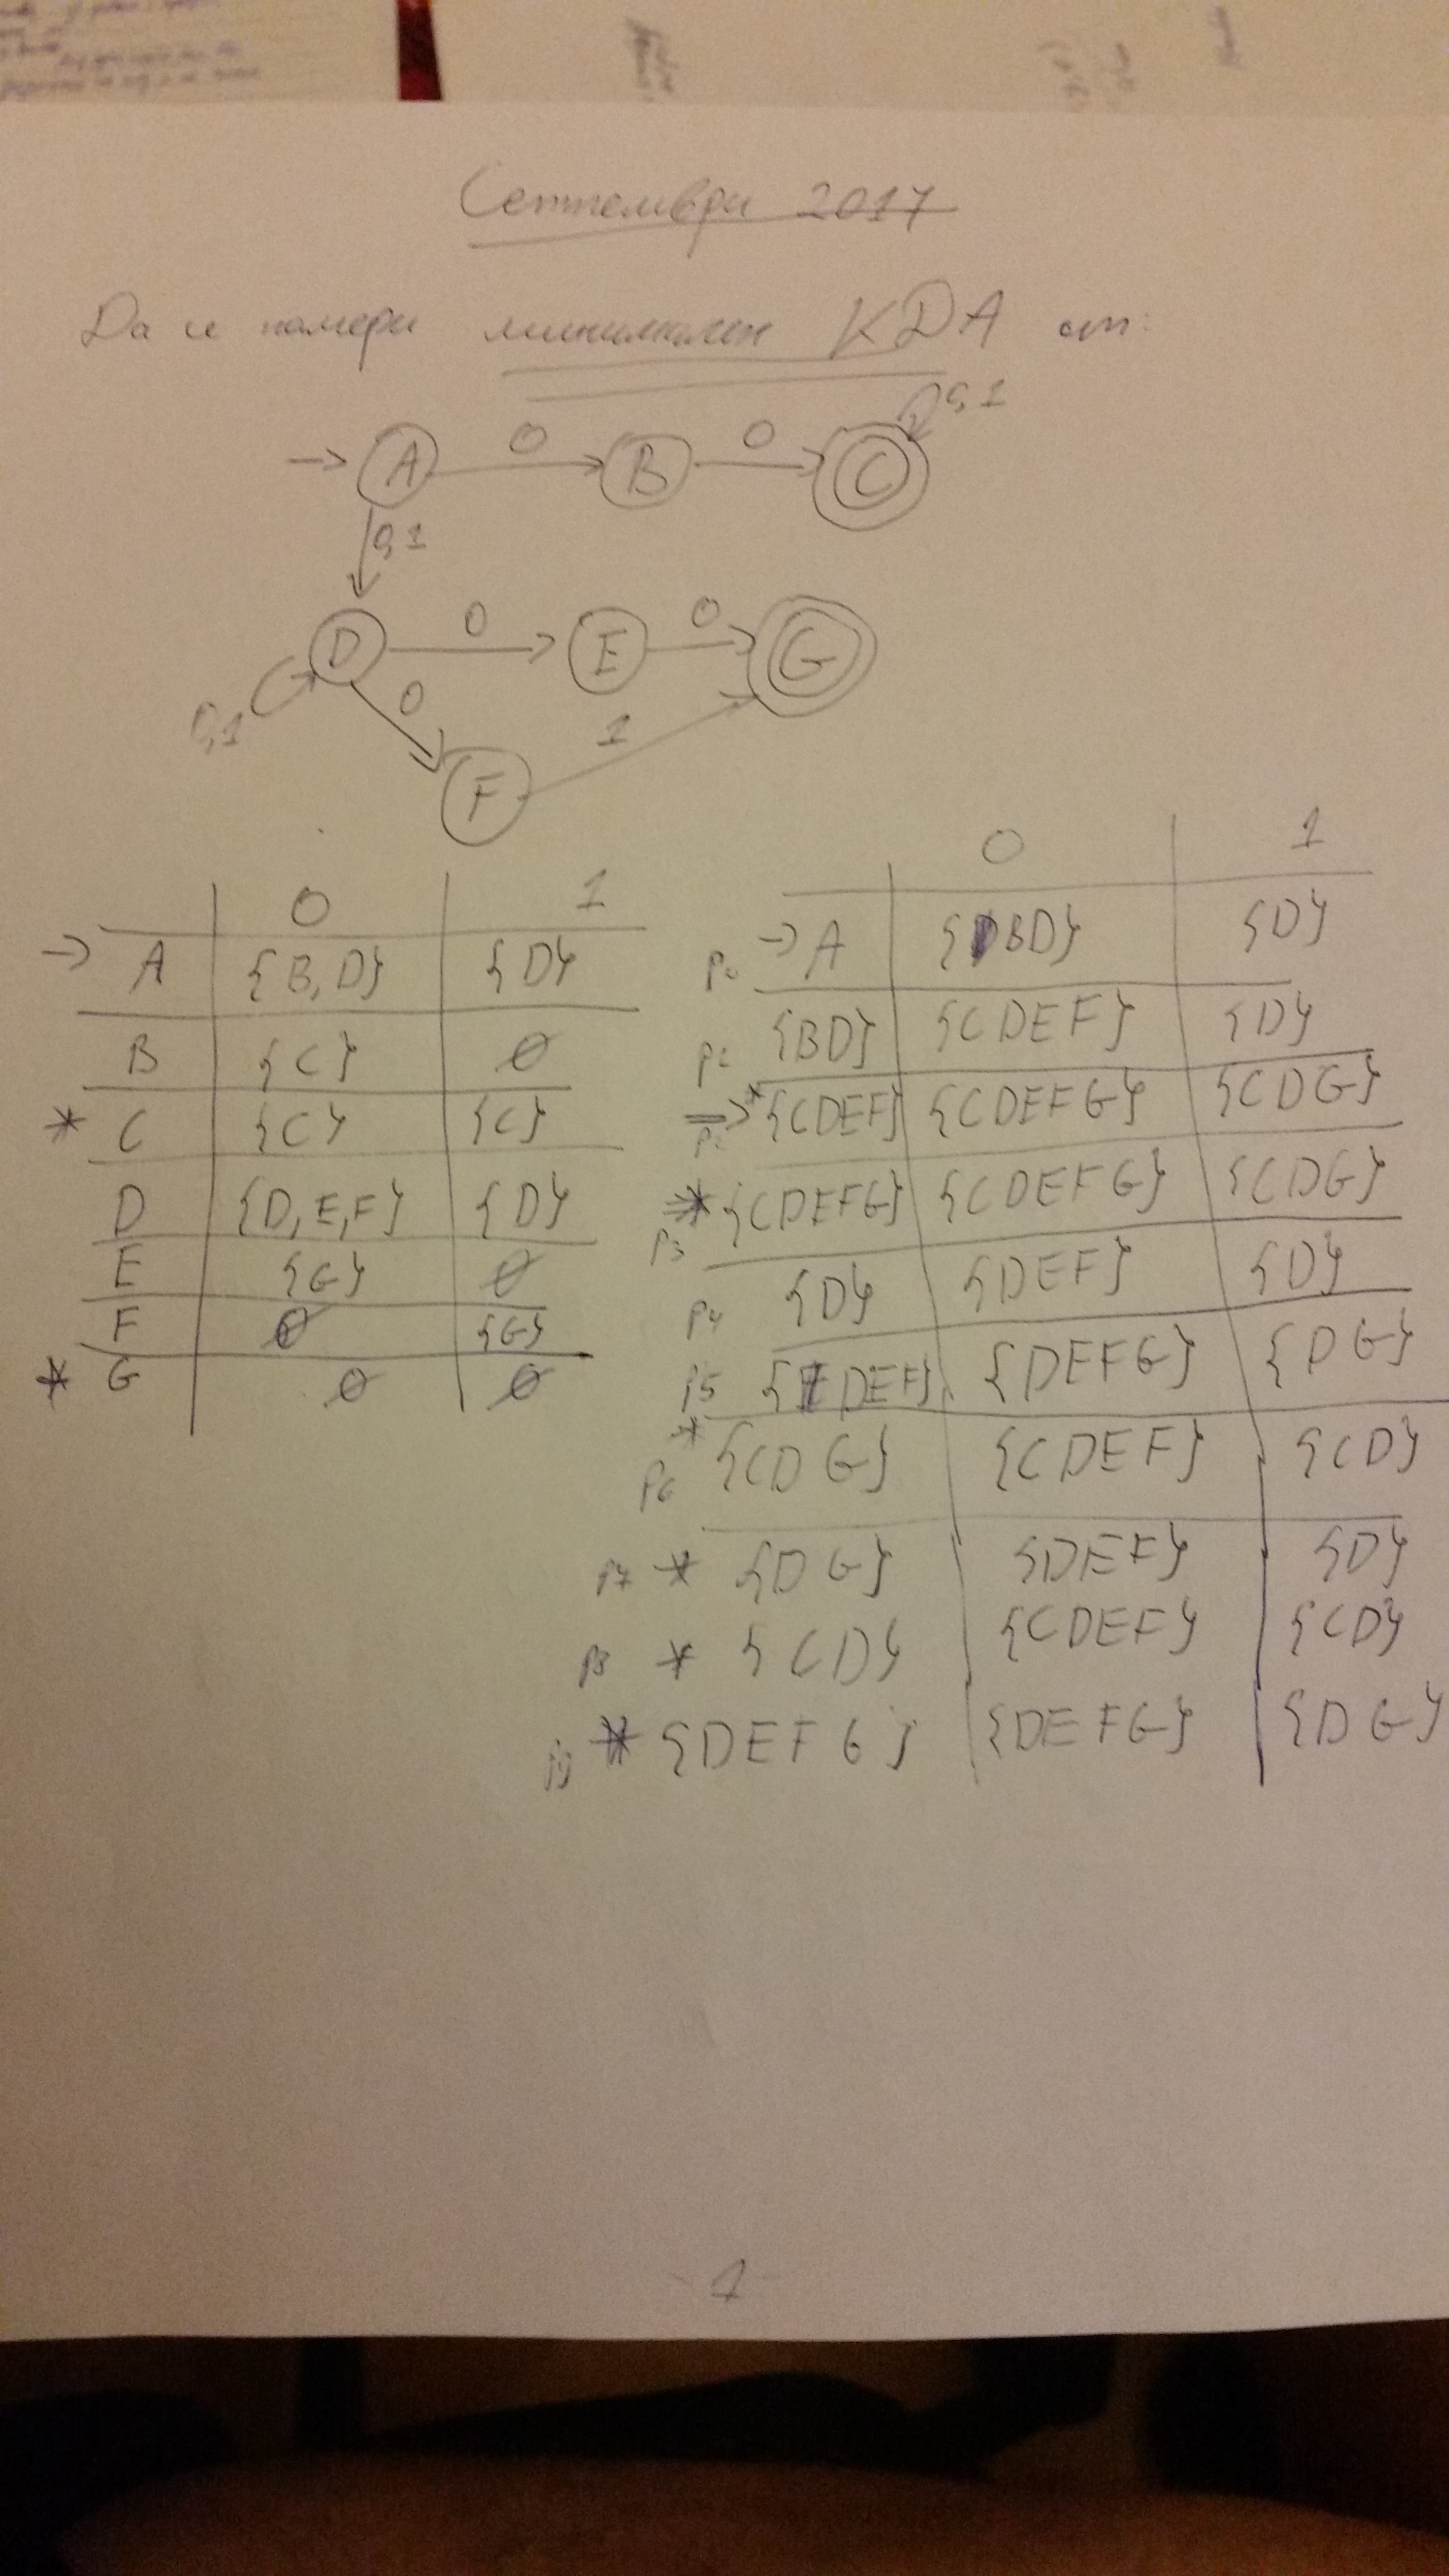 Септември 2017
Да се намери минимален КДА от:
0,1
→ A 0 B 0 C
0,1
D 0 E 0 G
0,1 0 1
F
0 1
→ A {B,D} {D}
B {C} ∅
* C {C} {C}
D {D,E,F} {D}
E {G} ∅
F ∅ {G}
* G ∅ ∅
0 1
p0 → A {BD} {D}
{BD} {CDEF} {D}
* {CDEF} {CDEFG} {CDG}
p3 * {CDEFG} {CDEFG} {CDG}
p4 {D} {DEF} {D}
p5 {DEF} {DEFG} {DG}
p6 * {CDG} {CDEF} {CD}
p7 * {DG} {DEF} {D}
p8 * {CD} {CDEF} {CD}
p9 * {DEFG} {DEFG} {DG}
1